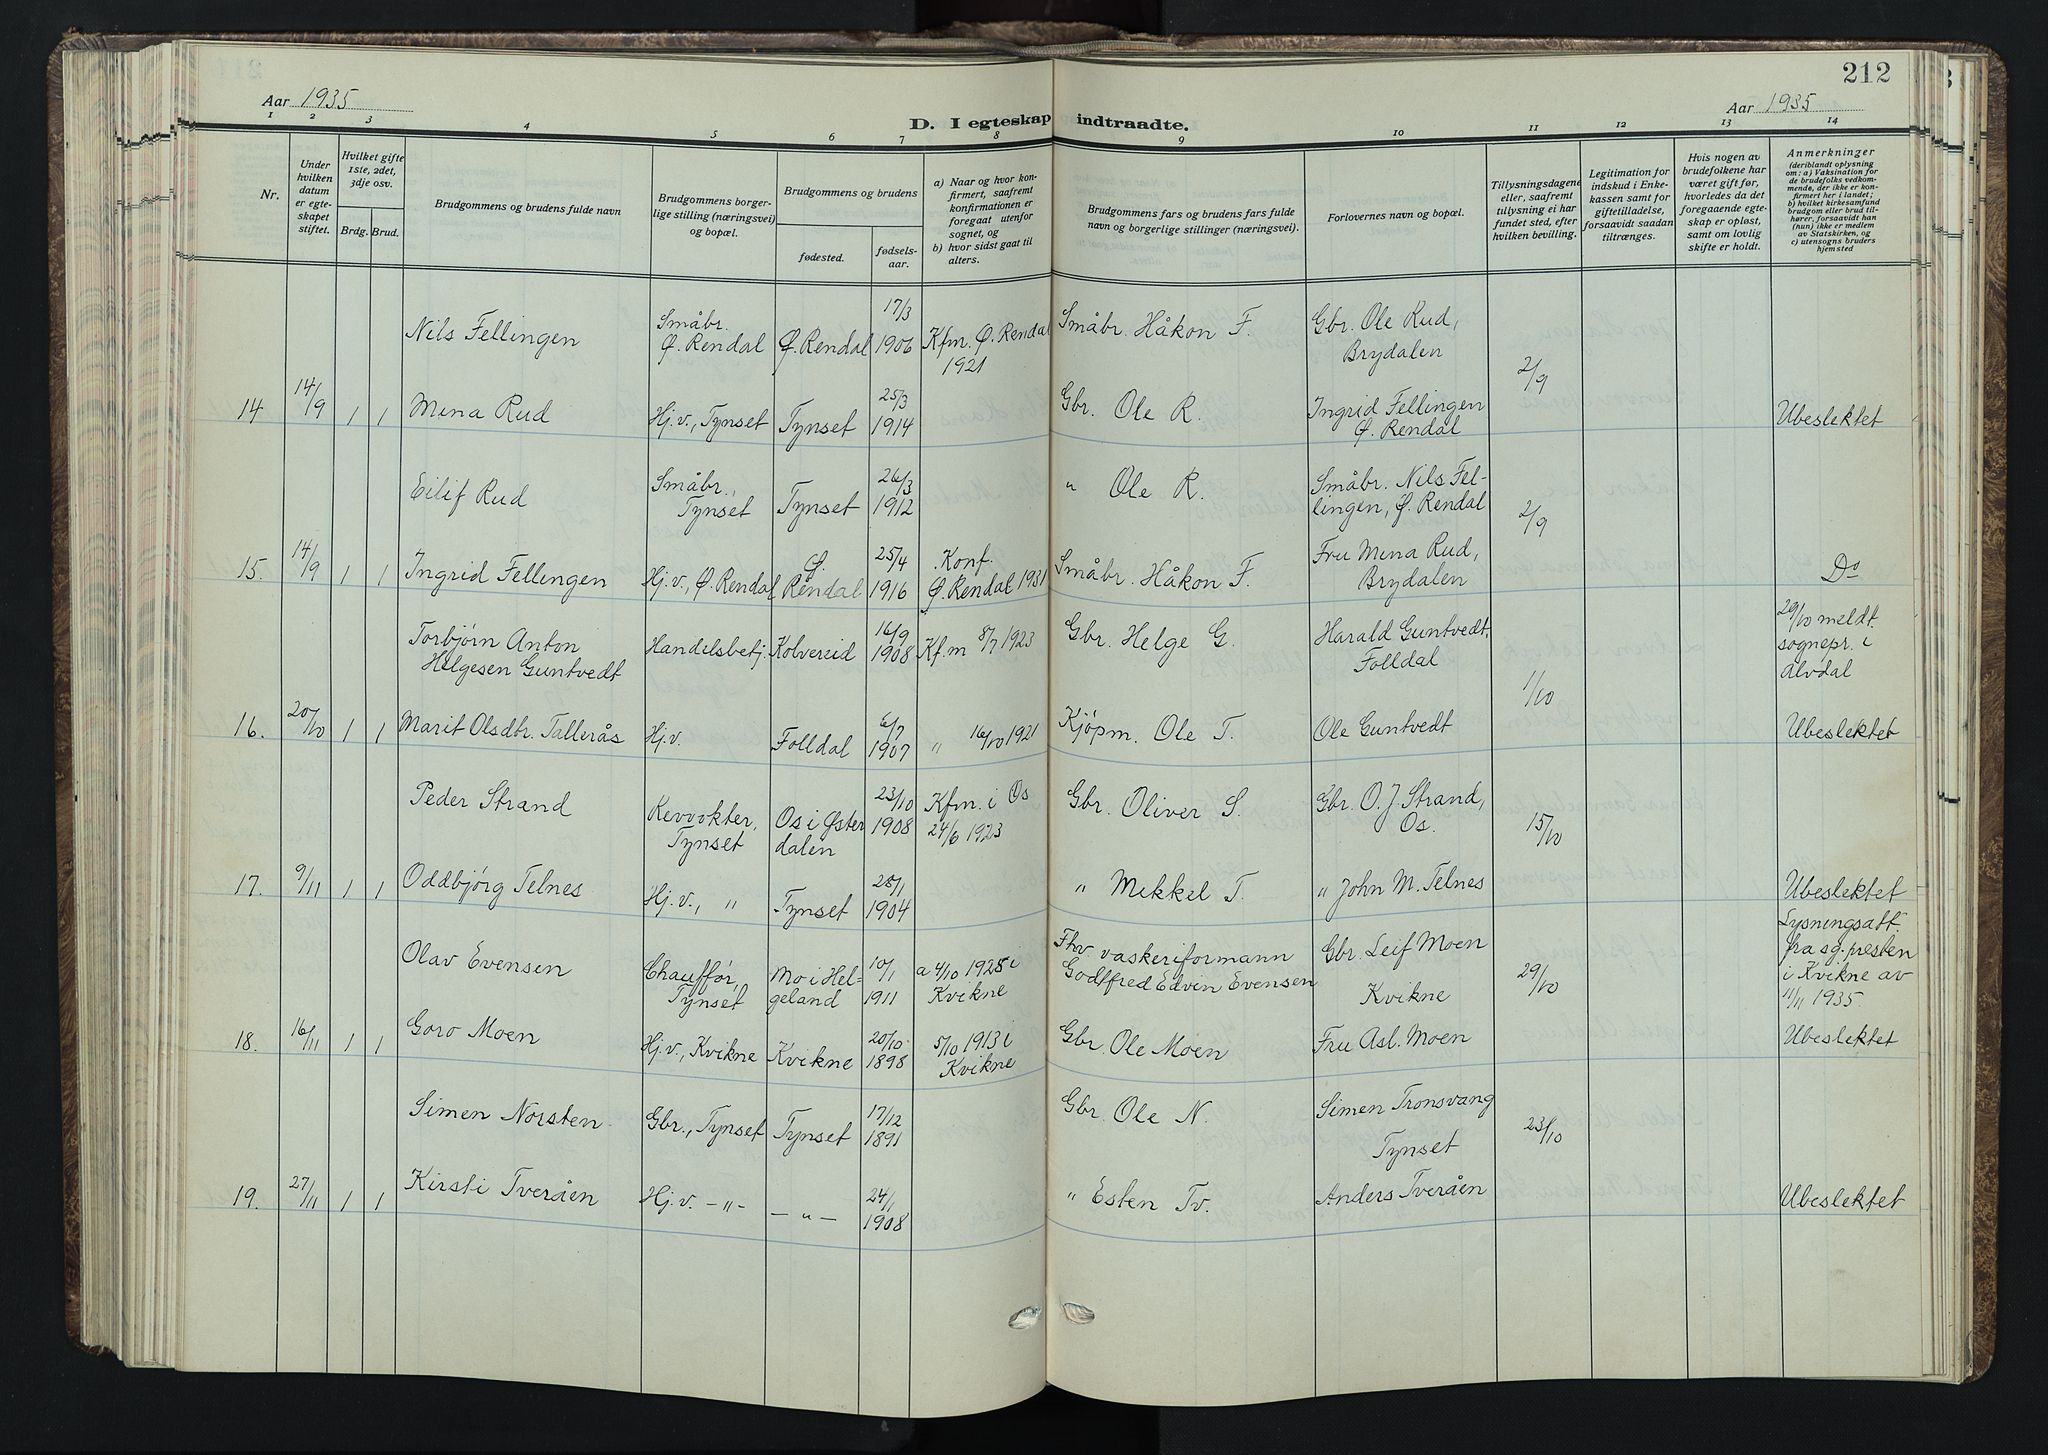 212
Aar 1935
Aar 1935
D. I egteskap indtraadte.
1 2 3 4 5 6 7 8 9 10 11 12 13 14
Nr.
Under
hvilken
datum
er egte-
skapet
stiftet.
Hvilket gifte
1ste, 2det,
3dje osv.
Brdg. Brud.
Brudgommens og brudens fulde navn
Brudgommens borger-
lige stilling (næringsvei)
og bopæl.
Brudgommens og brudens
fødested.
fødsels-
aar.
a) Naar og hvor kon-
firmert, saafremt
konfirmationen er
foregaat utenfor
sognet, og
b) hvor sidst gaat til
alters.
Brudgommens fars og brudens fars fulde
navn og borgerlige stillinger (næringsvei).
Forlovernes navn og bopæl.
Tillysningsdagene
eller, saafremt
tillysning ei har
fundet sted, efter
hvilken bevilling.
Legitimation for
indskud i Enke-
kassen samt for
giftetilladelse,
forsaavidt saadan
tiltrænges.
Hvis nogen av
brudefolkene har
været gift før,
hvorledes da det
foregaaende egte-
skap er opløst,
samt om lovlig
skifte er holdt.
Anmerkninger
(deriblandt oplysning
om: a) Vaksination for
de brudefolks vedkom-
mende, der ikke er kon-
firmert her i landet;
b) hvilket kirkesamfund
brudgom eller brud til-
hører, forsaavidt han
(hun) ikke er medlem
av Statskirken, og
c) utensogns bruders
hjemsted
Nils Fellingen
Småbr.
Ø. Rendal
Ø. Rendal
17/3
1906
Kfm. Ø. Rendal
1921
Småbr. Håkon F.
Gbr. Ole Rud,
Brydalen
2/9
14
14/9
1 1
Mina Rud
Hj.v., Tynset
Tynset
25/3
1914
Gbr. Ole R.
Ingrid Fellingen
Ø. Rendal
Ubeslektet
Eilif Rud
Småbr.,
Tynset
Tynset
26/3
1912
" Ole R.
Småbr. Nils Fel-
lingen, Ø. Rendal
2/9
15.
14/9
1 1
Ingrid Fellingen
Hj.v., Ø. Rendal
Ø.
Rendal
25/4
1916
Konf.
Ø. Rendal 1931
Småbr. Håkon F.
Fru Mina Rud,
Brydalen
Do
Torbjørn Anton
Helgesen Guntvedt
Handelsbetj.
Kolvereid
16/9
1908
Kfm 8/7 1923
Gbr. Helge G.
Harald Guntvedt,
Folldal
1/10
29/10 meldt
sognepr. i
Alvdal
16.
20/10
1 1
Marit Olsdtr. Tallerås
Hj.v.
Folldal
6/7
1907
" 16/10 1921
Kjøpm. Ole T.
Ole Guntvedt
Ubeslektet
Peder Strand
Røkter,
Tynset
Os i Øster
dalen
23/10
1908
Kfm. i Os
24/6 1923
Gbr. Oliver S.
Gbr. O. J. Strand,
Os.
15/10
17.
9/11
1 1
Oddbjørg Telnes
Hj.v., "
Tynset
28/1
1904
" Mikkel T.
" John M. Telnes
Ubeslektet
Olav Evensen
Chauffør,
Tynset
Mo i Hel-
geland
10/1
1911
a 4/10 1925 i
Kvikne
Fhv. vaskeriformann
Godtfred Edvin Evensen
Gbr. Leif Moen
Kvikne
29/10
Lysningsatt.
fra sg.presten
i Kvikne av
11/11 1935.
18.
16/11
1 1
Goro Moen
Hj.v., Kvikne
Kvikne
20/10
1898
5/10 1913 i
Kvikne
Gbr. Ole Moen
Fru Asl. Moen
Ubeslektet
Simen Norsten
Gbr., Tynset
Tynset
17/12
1891
Gbr. Ole N.
Simen Tronsvang
Tynset
23/10
19.
27/11
1 1
Kirsti Tveråen
Hj.v. -"-
-"-
24/1
1908
" Esten Tv.
Anders Tveråen
Ubeslektet